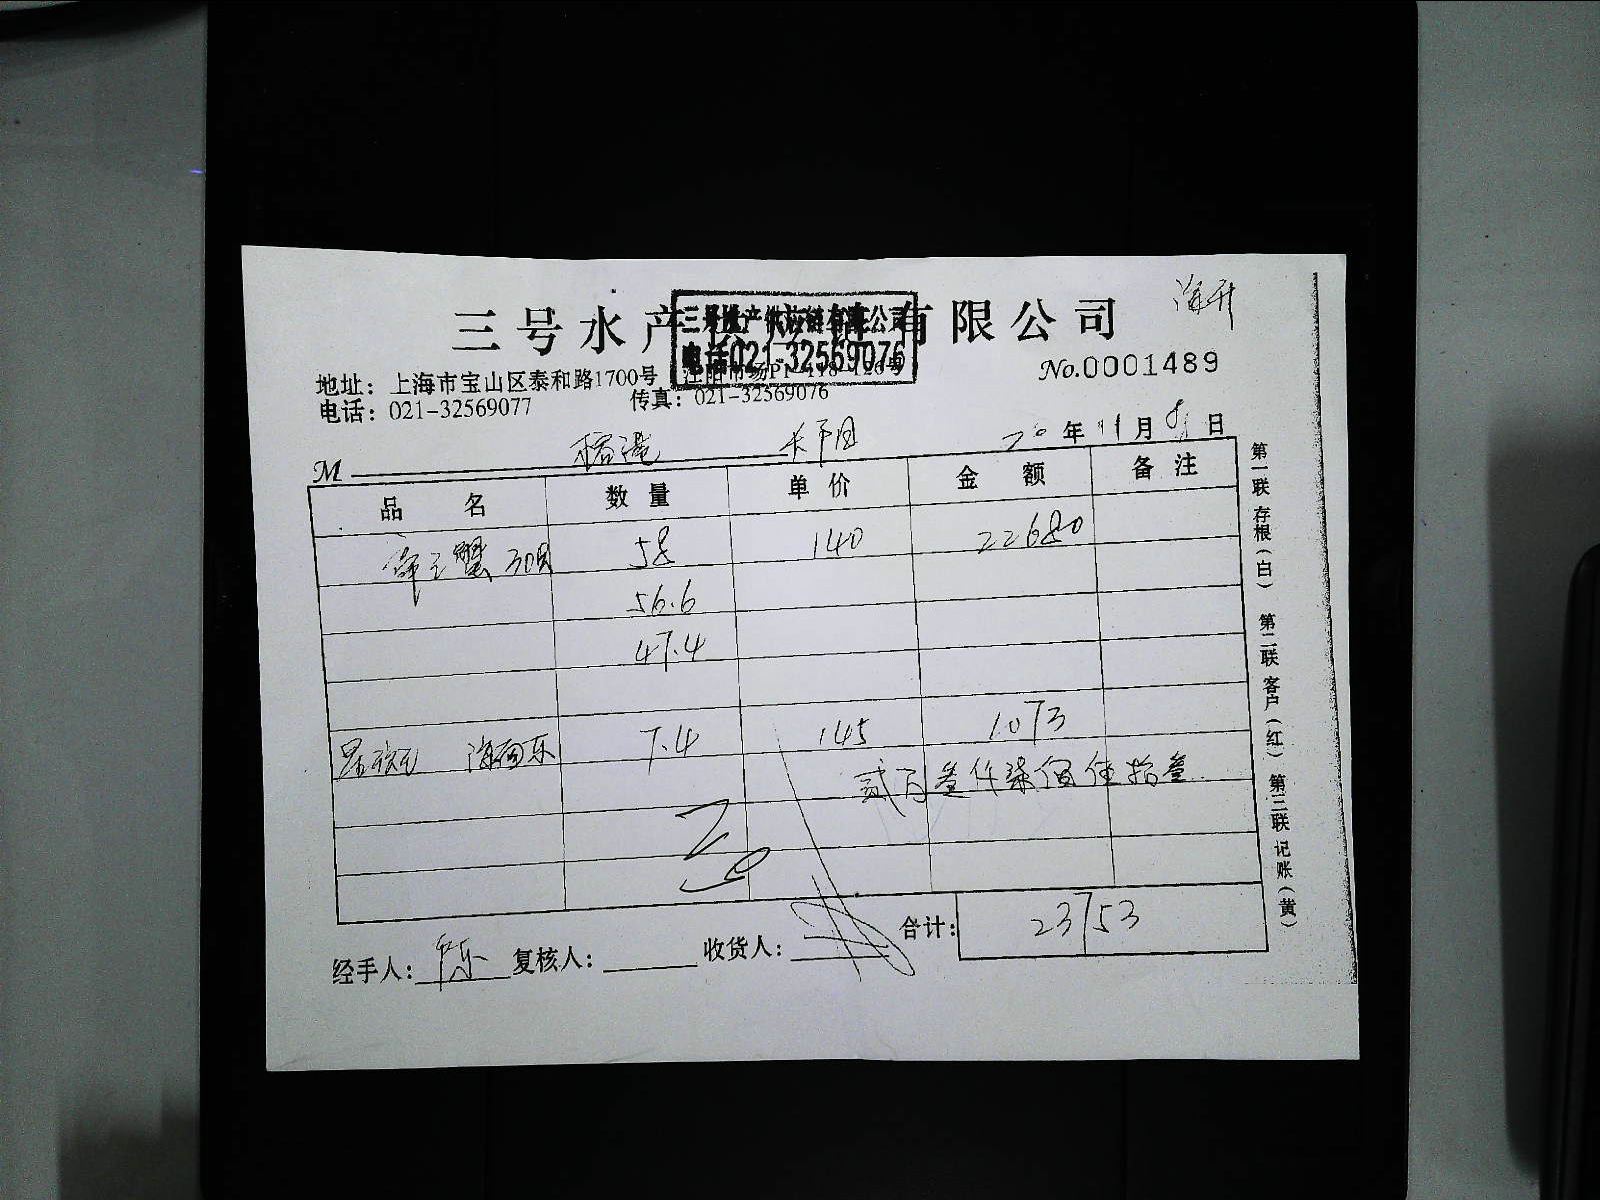 海升
三号水产供应链有限公司
三号水产供应链有限公司
电话021-32569076
No.0001489
地址：上海市宝山区泰和路1700号 江阳市场P1-118-120号
电话：021-32569077 传真：021-32569076
20年11月8日
M 榕港 长阳
品名 数量 单价 金额 备注
帝王蟹 30只 58 140 22680
56.6
47.4
7.4 145 1073
贰万叁仟柒佰伍拾叁
合计：23753
经手人： 复核人： 收货人：
第一联 存根（白） 第二联 客户（红） 第三联 记账（黄）